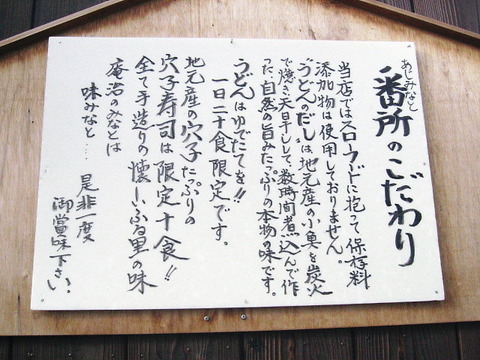 あじみなと
番所のこだわり
当店ではスローフードに拘って保存料
添加物は使用しておりません。
"うどんのだし"は地元産の小魚を炭火
で焼き天日干しして、数時間煮込んで作
った、自然の旨みたっぷりの本物の味です。
うどんはゆでたてを!!
一日二十食限定です。
地元産の穴子たっぷりの
穴子寿司は限定十食!!
全て手造りの懐しいふる里の味
庵治のみなとは
味みなと…
是非一度
御賞味下さい。